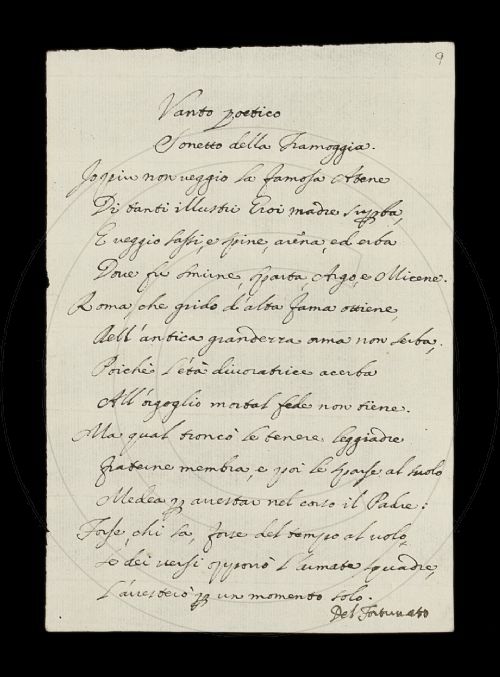 9
Vanto poetico
Sonetto della Tramoggia.
Io più non veggio la famosa Atene
Di tanti illustri Eroi madre supba,
E veggio sassi, e spine, arena, ed erba
Dove fu Smirne, Sparta, Argo, e Micene.
Roma, che grido d'alta fama ottiene,
Dell'antica grandezza orma non serba,
Poichè l'età divoratrice acerba
All'orgoglio mortal fede non tiene.
Ma qual troncò le tenere leggiadre
fraterne membra, e poi le sparse al suolo
Medea p arrestar nel corso il Padre:
Forse, chi sa, forse del tempo al volo,
Se dei versi opporrò l'armate squadre,
L'arresterò p un momento solo.
Del Fortunato